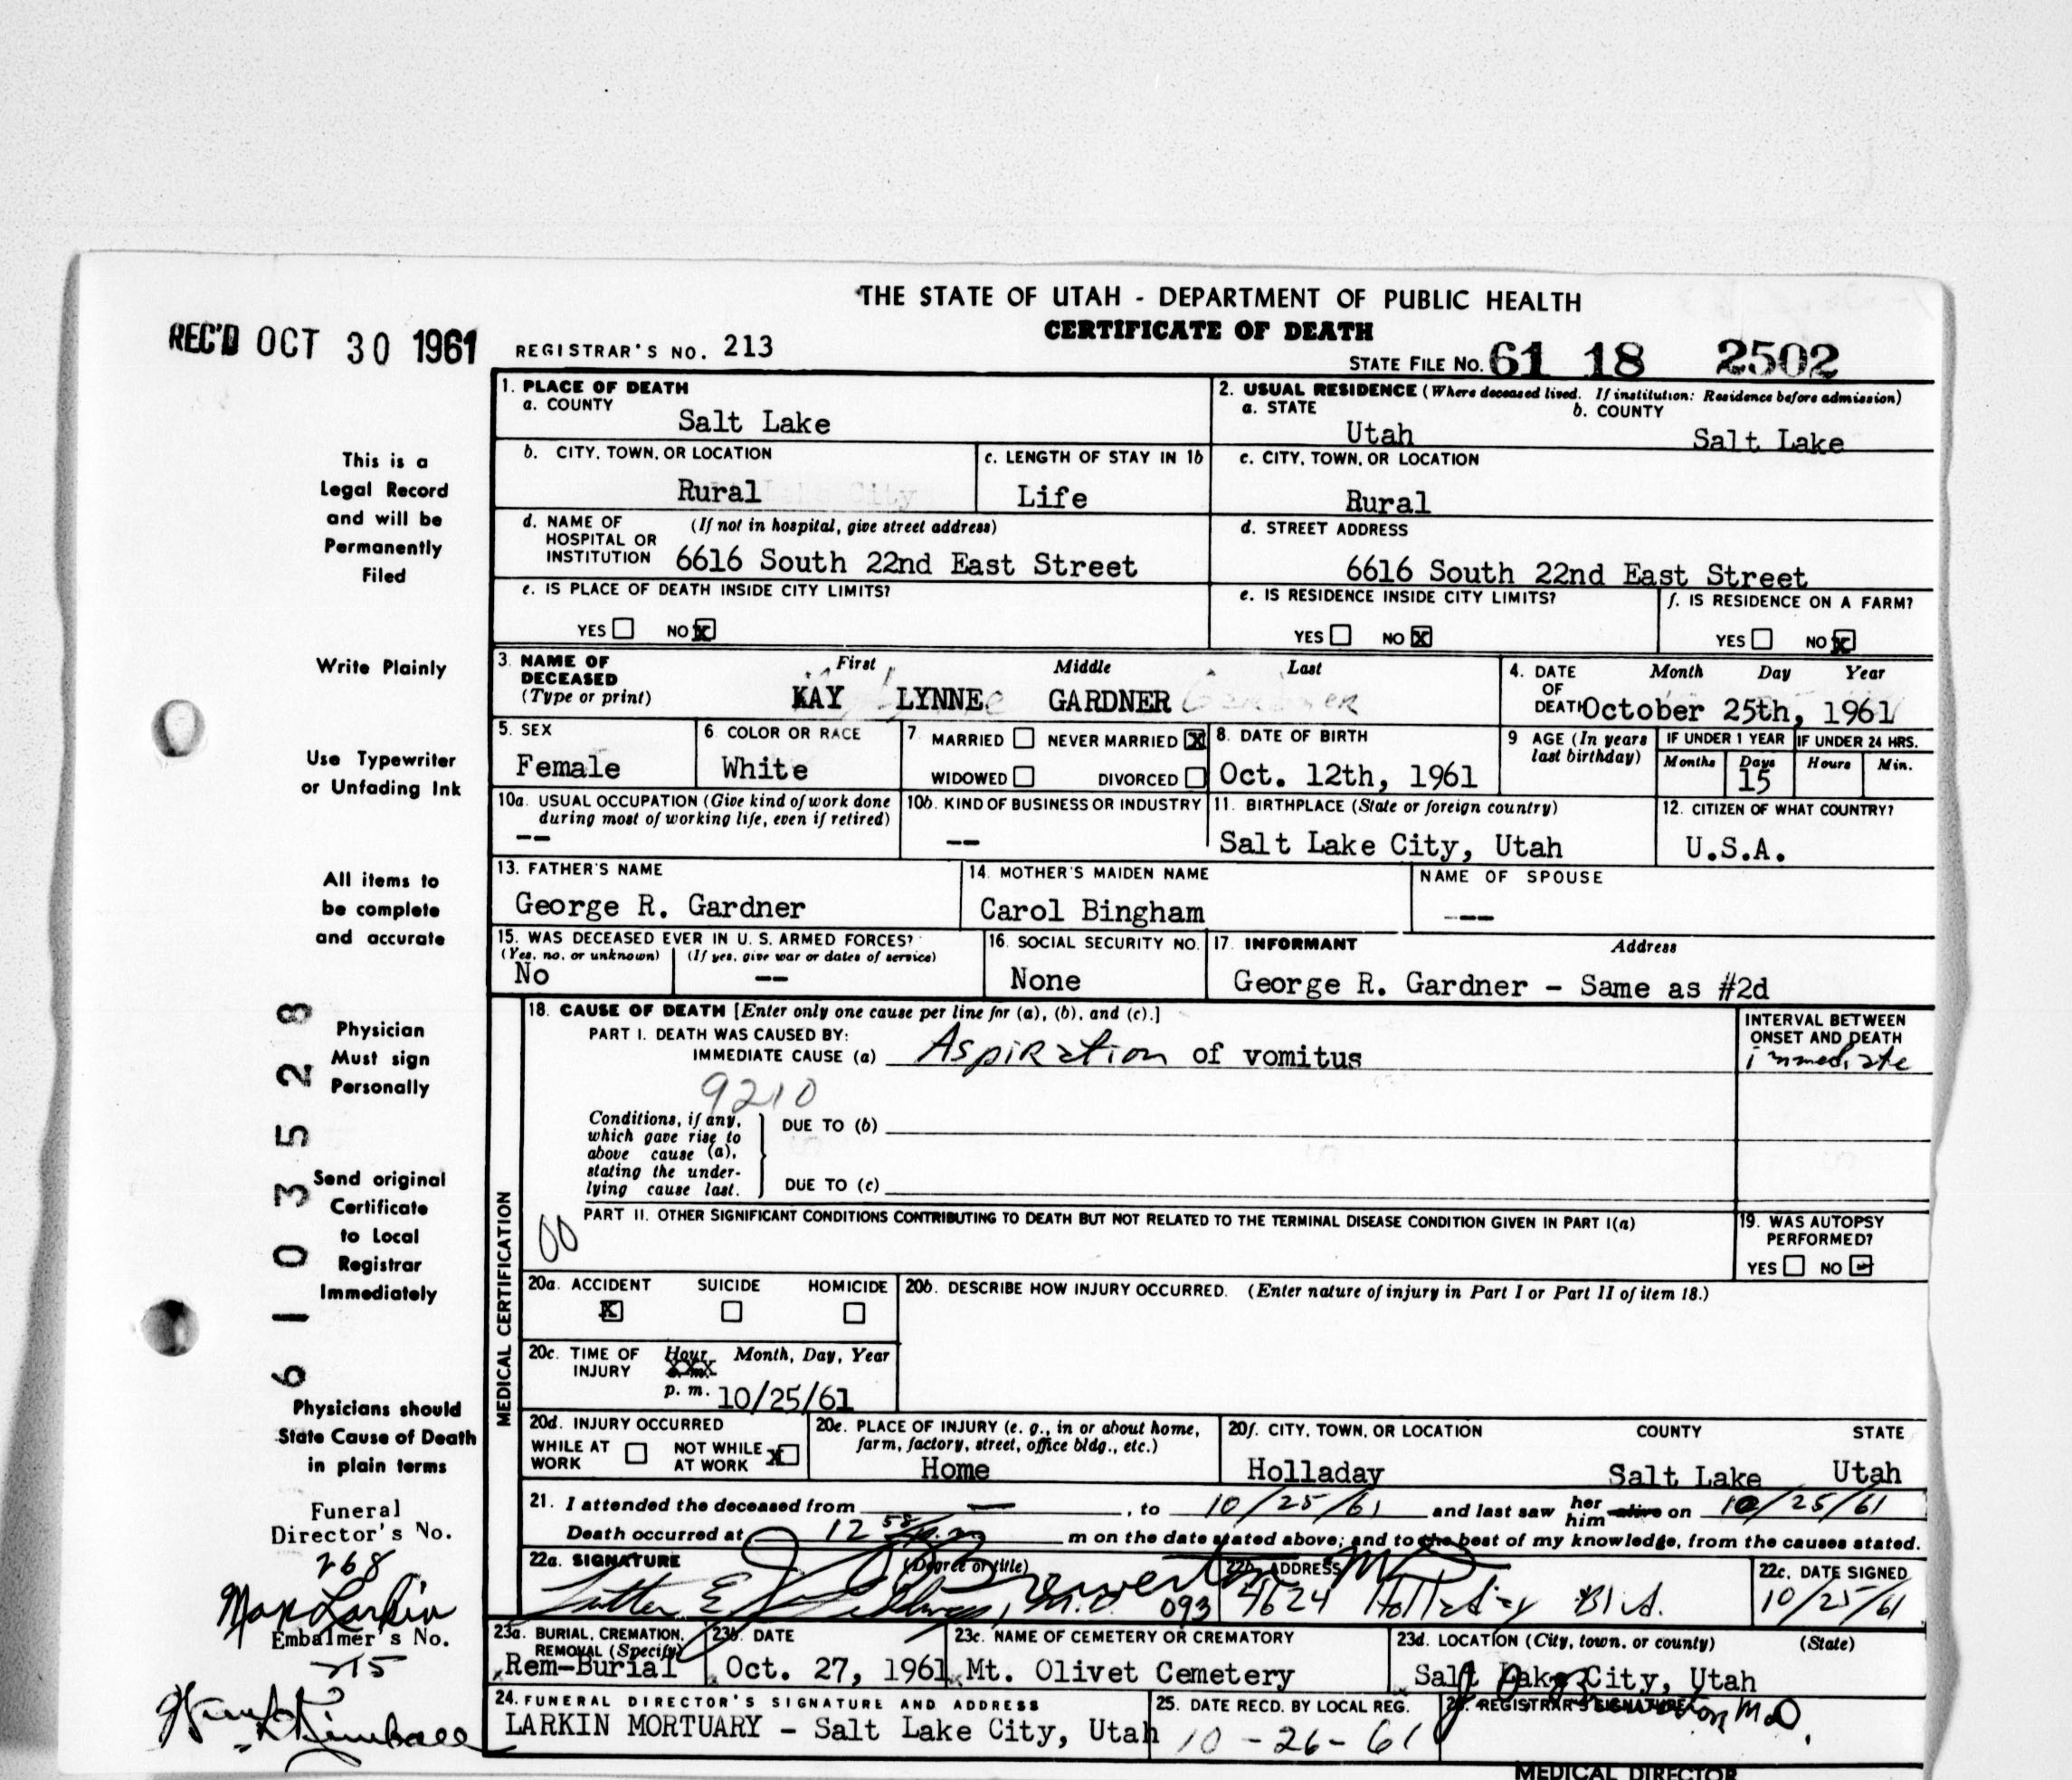 THE STATE OF UTAH - DEPARTMENT OF PUBLIC HEALTH
CERTIFICATE OF DEATH
REC'D OCT 30 1961
REGISTRAR'S NO. 213
STATE FILE NO. 61 18 2502
1. PLACE OF DEATH
a. COUNTY
Salt Lake
2. USUAL RESIDENCE (Where deceased lived. If institution: Residence before admission)
a. STATE b. COUNTY
Utah Salt Lake
b. CITY, TOWN, OR LOCATION
Rural
c. LENGTH OF STAY IN 1b
Life
c. CITY, TOWN, OR LOCATION
Rural
d. NAME OF HOSPITAL OR INSTITUTION (If not in hospital, give street address)
6616 South 22nd East Street
d. STREET ADDRESS
6616 South 22nd East Street
e. IS PLACE OF DEATH INSIDE CITY LIMITS?
YES NO X
e. IS RESIDENCE INSIDE CITY LIMITS?
YES NO X
f. IS RESIDENCE ON A FARM?
YES NO X
3. NAME OF DECEASED (Type or print)
First Middle Last
KAY LYNNE GARDNER
4. DATE OF DEATH Month Day Year
October 25th, 1961
5. SEX
Female
6. COLOR OR RACE
White
7. MARRIED NEVER MARRIED X
WIDOWED DIVORCED
8. DATE OF BIRTH
Oct. 12th, 1961
9 AGE (In years last birthday)
IF UNDER 1 YEAR IF UNDER 24 HRS.
Months Days Hours Min.
15
10a. USUAL OCCUPATION (Give kind of work done during most of working life, even if retired)
--
10b. KIND OF BUSINESS OR INDUSTRY
--
11. BIRTHPLACE (State or foreign country)
Salt Lake City, Utah
12. CITIZEN OF WHAT COUNTRY?
U.S.A.
13. FATHER'S NAME
George R. Gardner
14. MOTHER'S MAIDEN NAME
Carol Bingham
NAME OF SPOUSE
---
15. WAS DECEASED EVER IN U. S. ARMED FORCES?
(Yes, no, or unknown) (If yes, give war or dates of service)
No --
16. SOCIAL SECURITY NO.
None
17. INFORMANT Address
George R. Gardner - Same as #2d
MEDICAL CERTIFICATION
18. CAUSE OF DEATH [Enter only one cause per line for (a), (b), and (c).]
PART I. DEATH WAS CAUSED BY:
IMMEDIATE CAUSE (a) Aspiration of vomitus
INTERVAL BETWEEN ONSET AND DEATH
immediate
9210
Conditions, if any, which gave rise to above cause (a), stating the underlying cause last.
DUE TO (b)
DUE TO (c)
00
PART II. OTHER SIGNIFICANT CONDITIONS CONTRIBUTING TO DEATH BUT NOT RELATED TO THE TERMINAL DISEASE CONDITION GIVEN IN PART I(a)
19. WAS AUTOPSY PERFORMED?
YES NO
20a. ACCIDENT SUICIDE HOMICIDE
X
20b. DESCRIBE HOW INJURY OCCURRED. (Enter nature of injury in Part I or Part II of item 18.)
20c. TIME OF INJURY Hour Month, Day, Year
p. m. 10/25/61
20d. INJURY OCCURRED
WHILE AT WORK NOT WHILE AT WORK X
20e. PLACE OF INJURY (e. g., in or about home, farm, factory, street, office bldg., etc.)
Home
20f. CITY, TOWN, OR LOCATION COUNTY STATE
Holladay Salt Lake Utah
21. I attended the deceased from — , to 10/25/61 and last saw her him alive on 10/25/61
Death occurred at 12 58 p.m m on the date stated above; and to the best of my knowledge, from the causes stated.
22a. SIGNATURE (Degree or title)
M.D. 093
22b. ADDRESS
4624 Holladay Blvd.
22c. DATE SIGNED
10/25/61
23a. BURIAL, CREMATION, REMOVAL (Specify)
Rem-Burial
23b. DATE
Oct. 27, 1961
23c. NAME OF CEMETERY OR CREMATORY
Mt. Olivet Cemetery
23d. LOCATION (City, town, or county) (State)
Salt Lake City, Utah
24. FUNERAL DIRECTOR'S SIGNATURE AND ADDRESS
LARKIN MORTUARY - Salt Lake City, Utah
25. DATE RECD. BY LOCAL REG.
10-26-61
26. REGISTRAR'S SIGNATURE
M.D.
MEDICAL DIRECTOR
This is a
Legal Record
and will be
Permanently
Filed
Write Plainly
Use Typewriter
or Unfading Ink
All items to
be complete
and accurate
Physician
Must sign
Personally
Send original
Certificate
to Local
Registrar
Immediately
Physicians should
State Cause of Death
in plain terms
6103528
Funeral
Director's No.
268
Max Larkin
Embalmer's No.
215
Kimball